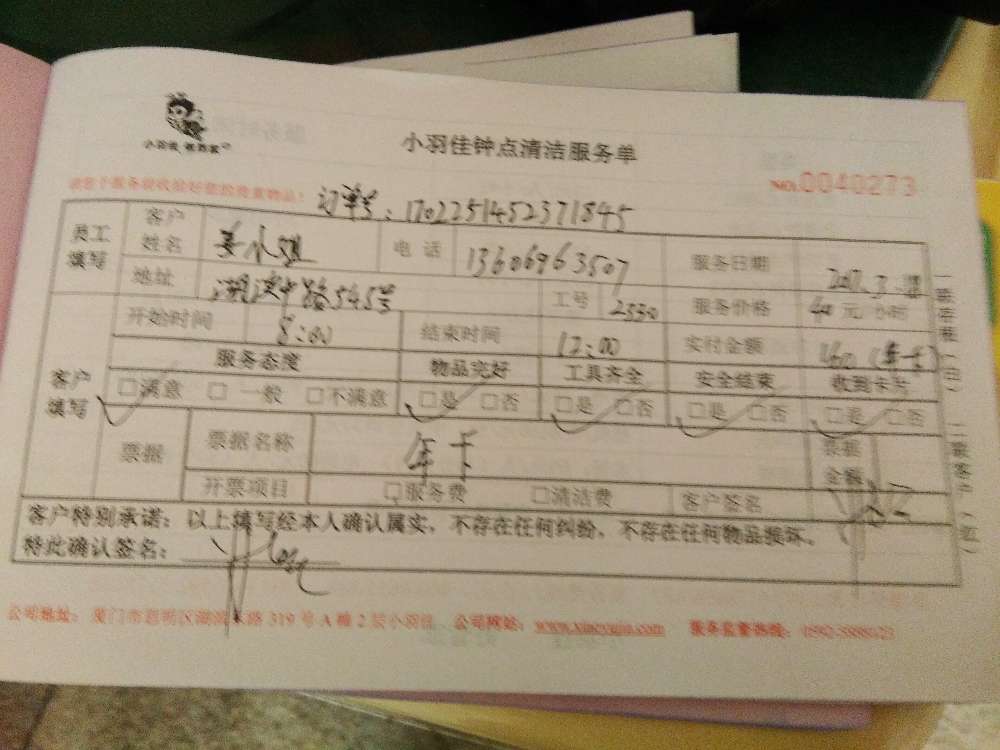 小羽佳钟点清洁服务单
NO.0040273
订单号：170225145237 1845
员工填写 客户姓名 姜小姐 电话 13606963507 服务日期
地址 湖滨中路545号 工号 2550 服务价格 40元/小时
开始时间 8:00 结束时间 12:00 实付金额 160（年卡）
服务态度 物品完好 工具齐全 安全结束 收到卡片
客户填写 □满意 □一般 □不满意 □是 □否 □是 □否 □是 □否 □是 □否
票据 票据名称 年卡 票据金额
开票项目 □服务费 □清洁费 客户签名
客户特别承诺：以上填写经本人确认属实，不存在任何纠纷，不存在任何物品损坏。
特此确认签名：
公司地址：厦门市思明区湖滨 路319号A幢2层小羽佳 公司网站：www.xiaoyujia.com 服务监督热线：